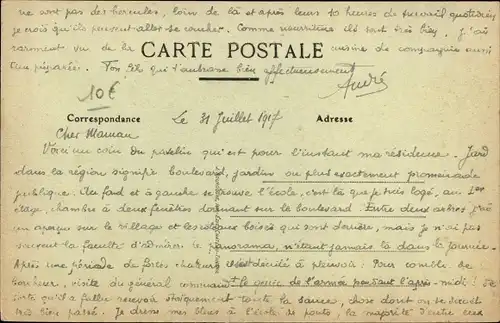 ne sont pas des hercules, loin de là et après leurs 10 heures de travail quotidien
je crois qu'ils peuvent aller se coucher. Comme nourriture ils sont très bien. J'ai
rarement vu de la cuisine de compagnie aussi
CARTE POSTALE
bien préparée. Ton qui t'embrasse bien affectueusement
André
10€
Correspondance Le 31 Juillet 1917 Adresse
Cher Maman
Voici un coin du patelin qui est pour l'instant ma résidence. Jard
dans la région signifie boulevard, jardin ou plus exactement promenade
publique. Au fond et à gauche se trouve l'école, c'est là que je suis logé, au 1er
étage, chambre à deux fenêtres donnant sur le boulevard. Entre deux arbres j'ai
un aperçu sur le village et les coteaux boisés qui sont derrière, mais je n'ai pas
souvent la faculté d'admirer le panorama, n'étant jamais là dans la journée.
Après une période de fortes chaleurs décidé à pleuvoir. Pour comble de
bonheur, visite du général commandant le génie de l'armée pendant l'après-midi : de
sorte qu'il a fallu recevoir stoïquement toute la sauce, chose dont on se serait
très bien passé. Je dans mes à l'école se porte, la majorité d'entre eux